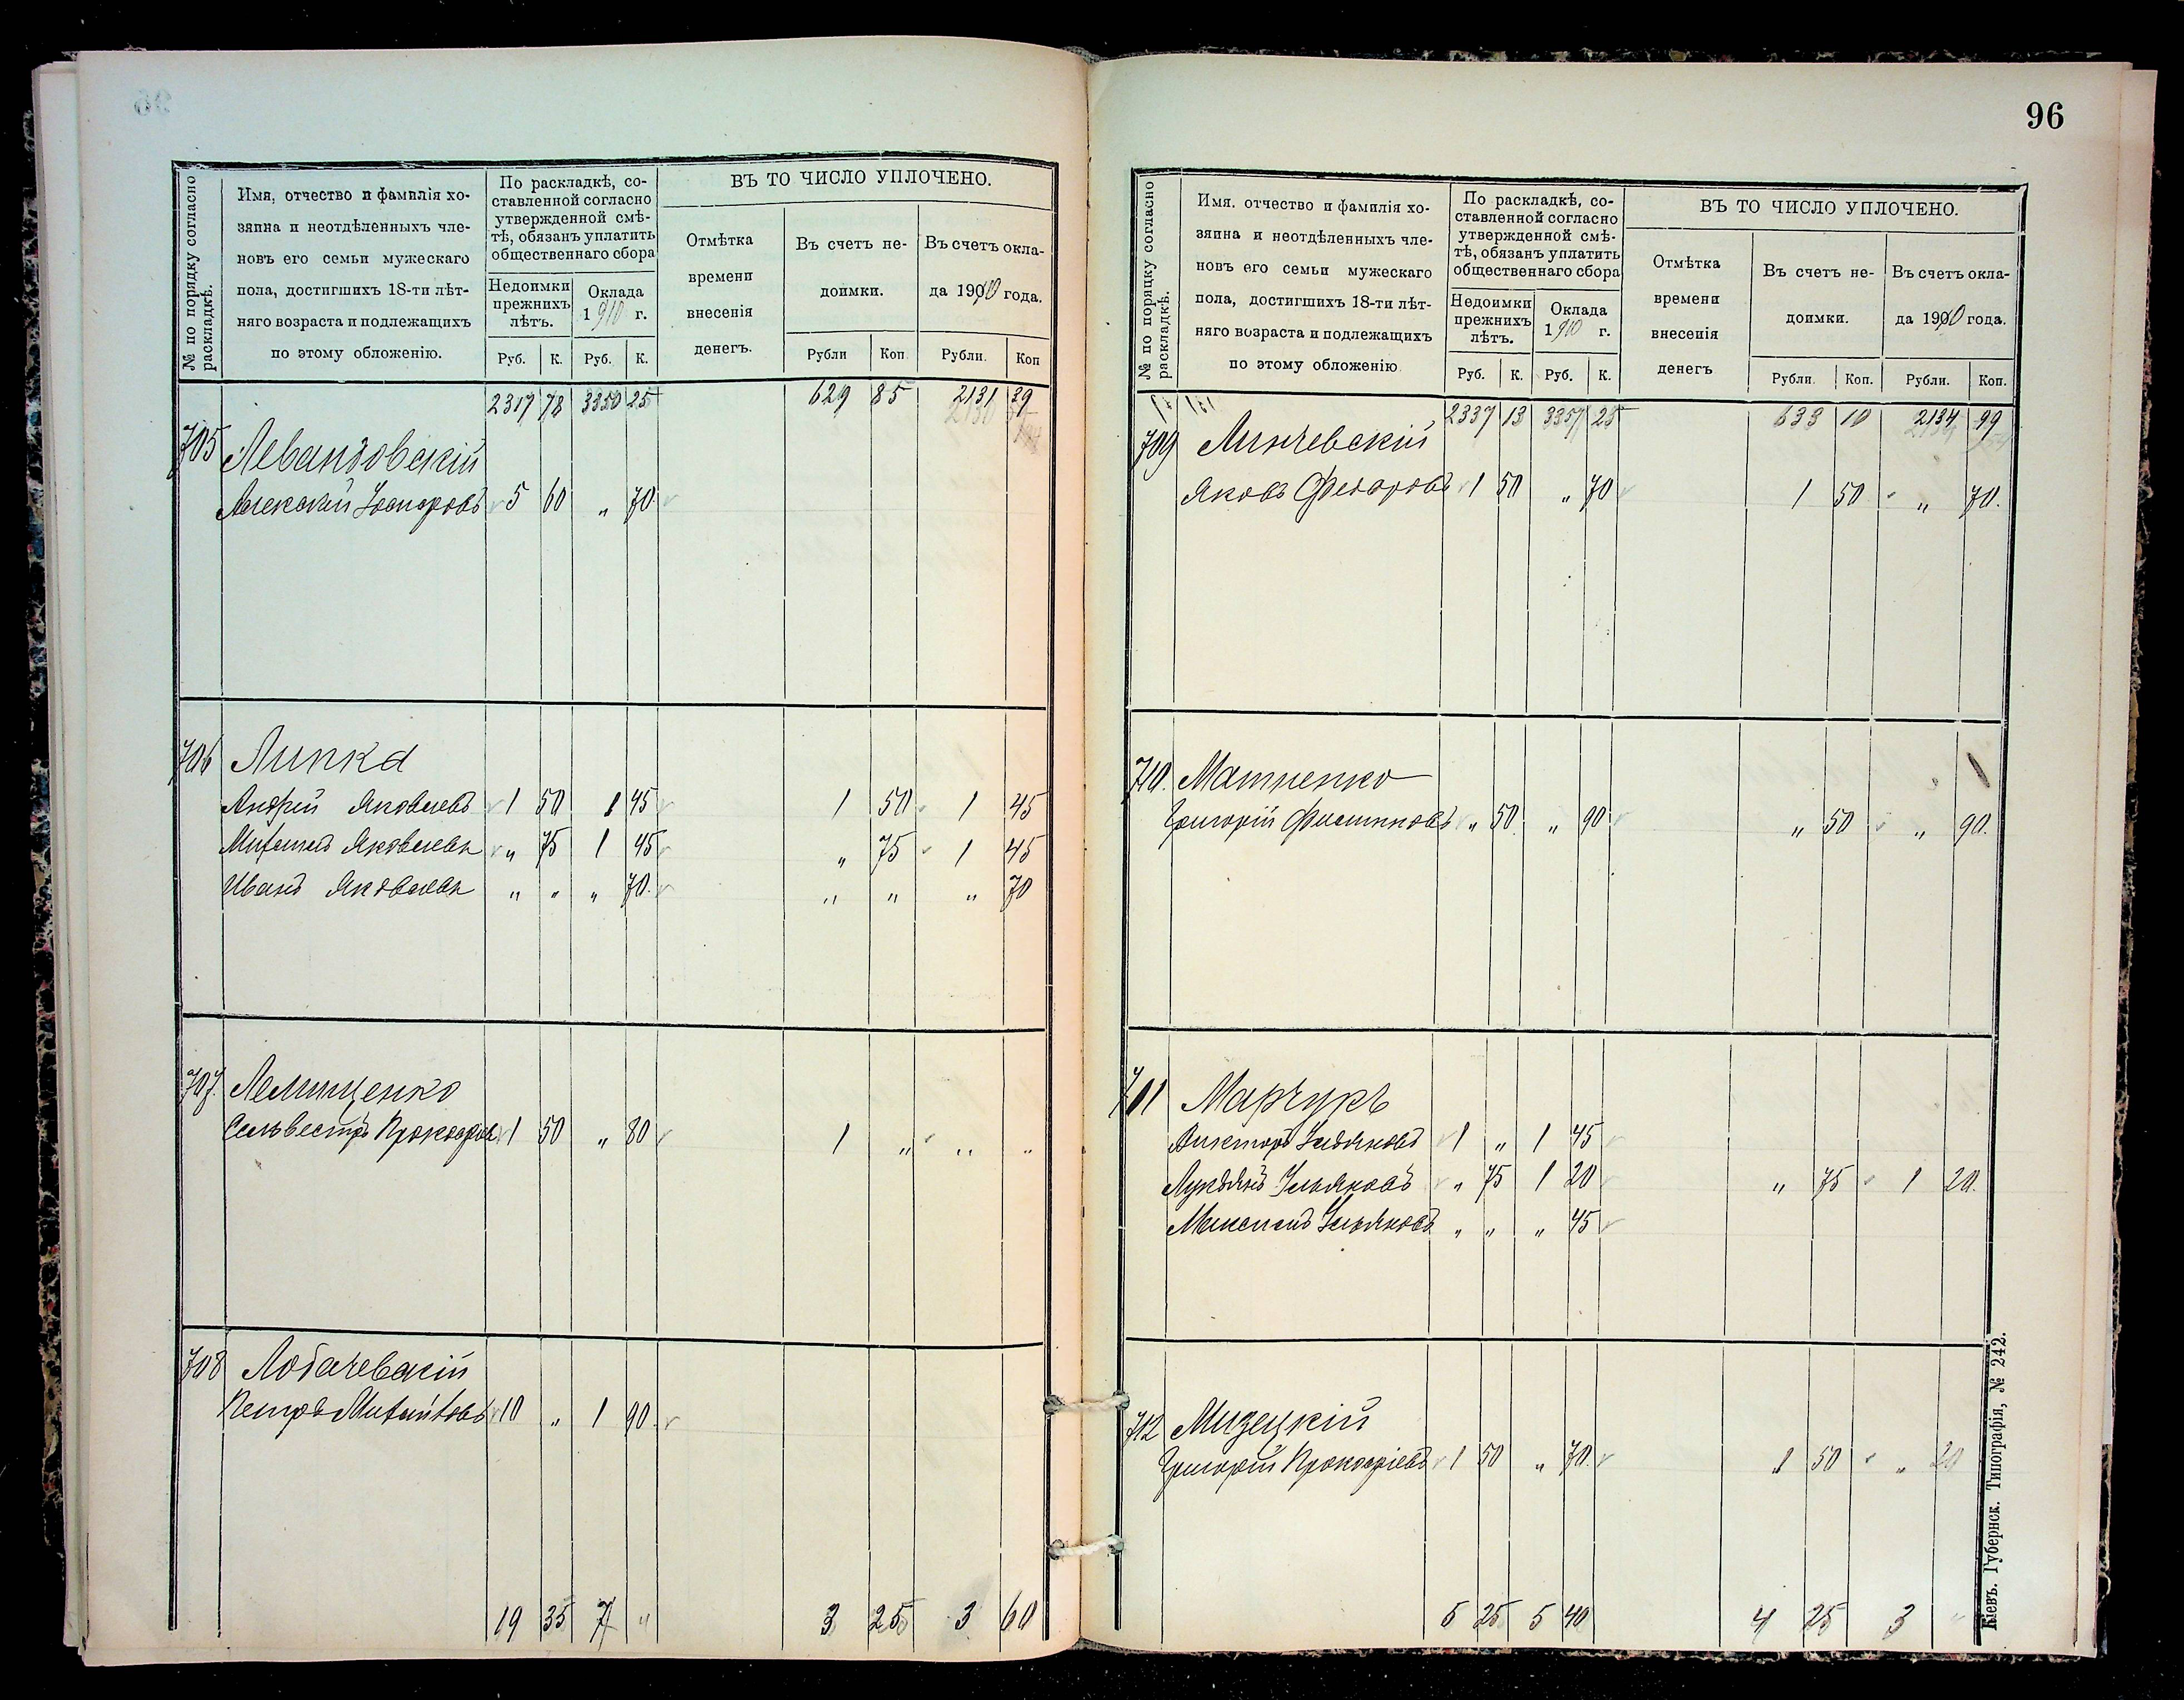 96
№ по порядку согласно раскладкѣ.
Имя, отчество и фамилія хо-
зяина и неотдѣленныхъ чле-
новъ его семьи мужескаго
пола, достигшихъ 18-ти лѣт-
няго возраста и подлежащихъ
по этому обложенію.
По раскладкѣ, со-
ставленной согласно
утвержденной смѣ-
тѣ, обязанъ уплатить
общественнаго сбора
Недоимки
прежнихъ
лѣтъ.
Оклада
1910 г.
Руб. К. Руб. К.
ВЪ ТО ЧИСЛО УПЛОЧЕНО.
Отмѣтка
времени
внесенія
денегъ.
Въ счетъ не-
доимки.
Въ счетъ окла-
да 1910 года.
Рубли Коп. Рубли. Коп
2317 78 3350 25 629 85 2131 39
705 Левандовскій
Алексѣй 5 60 " 70
706 Липка
Андрей Яковлевъ 1 50 1 45 1 50 1 45
Михаилъ Яковлевъ " 75 1 45 " 75 1 45
Иванъ Яковлевъ " " " 70 " " " 70
707. Лемищенко
Сельвестръ Прокофіевъ 1 50 " 80 1 " " "
708 Лобачевскій
Петръ Михайловъ 10 " 1 90
19 35 7 " 3 25 3 60
96
№ по порядку согласно раскладкѣ.
Имя, отчество и фамилія хо-
зяина и неотдѣленныхъ чле-
новъ его семьи мужескаго
пола, достигшихъ 18-ти лѣт-
няго возраста и подлежащихъ
по этому обложенію
По раскладкѣ, со-
ставленной согласно
утвержденной смѣ-
тѣ, обязанъ уплатить
общественнаго сбора
Недоимки
прежнихъ
лѣтъ.
Оклада
1910 г.
Руб. К. Руб. К.
ВЪ ТО ЧИСЛО УПЛОЧЕНО.
Отмѣтка
времени
внесенія
денегъ
Въ счетъ не-
доимки.
Въ счетъ окла-
да 1910 года.
Рубли. Коп. Рубли. Коп.
2337 13 3357 25 633 10 2134 99
709 Линчевскій
Яковъ Федоровъ 1 50 " 70 1 50 " 70.
710. Матненко
Григорій " 50 " 90 " 50 " 90.
711 Марчукъ
Викторъ Ульяновъ 1 " 1 45
Лукьянъ Ульяновъ " 75 1 20 " 75 1 20.
Максимъ Ульяновъ " " " 45
712 Мизецкій
Григорій Прокофіевъ 1 50 " 70. 1 50 " 20
5 25 5 40 4 25 3 "
Кіевъ. Губернск. Типографія, № 242.